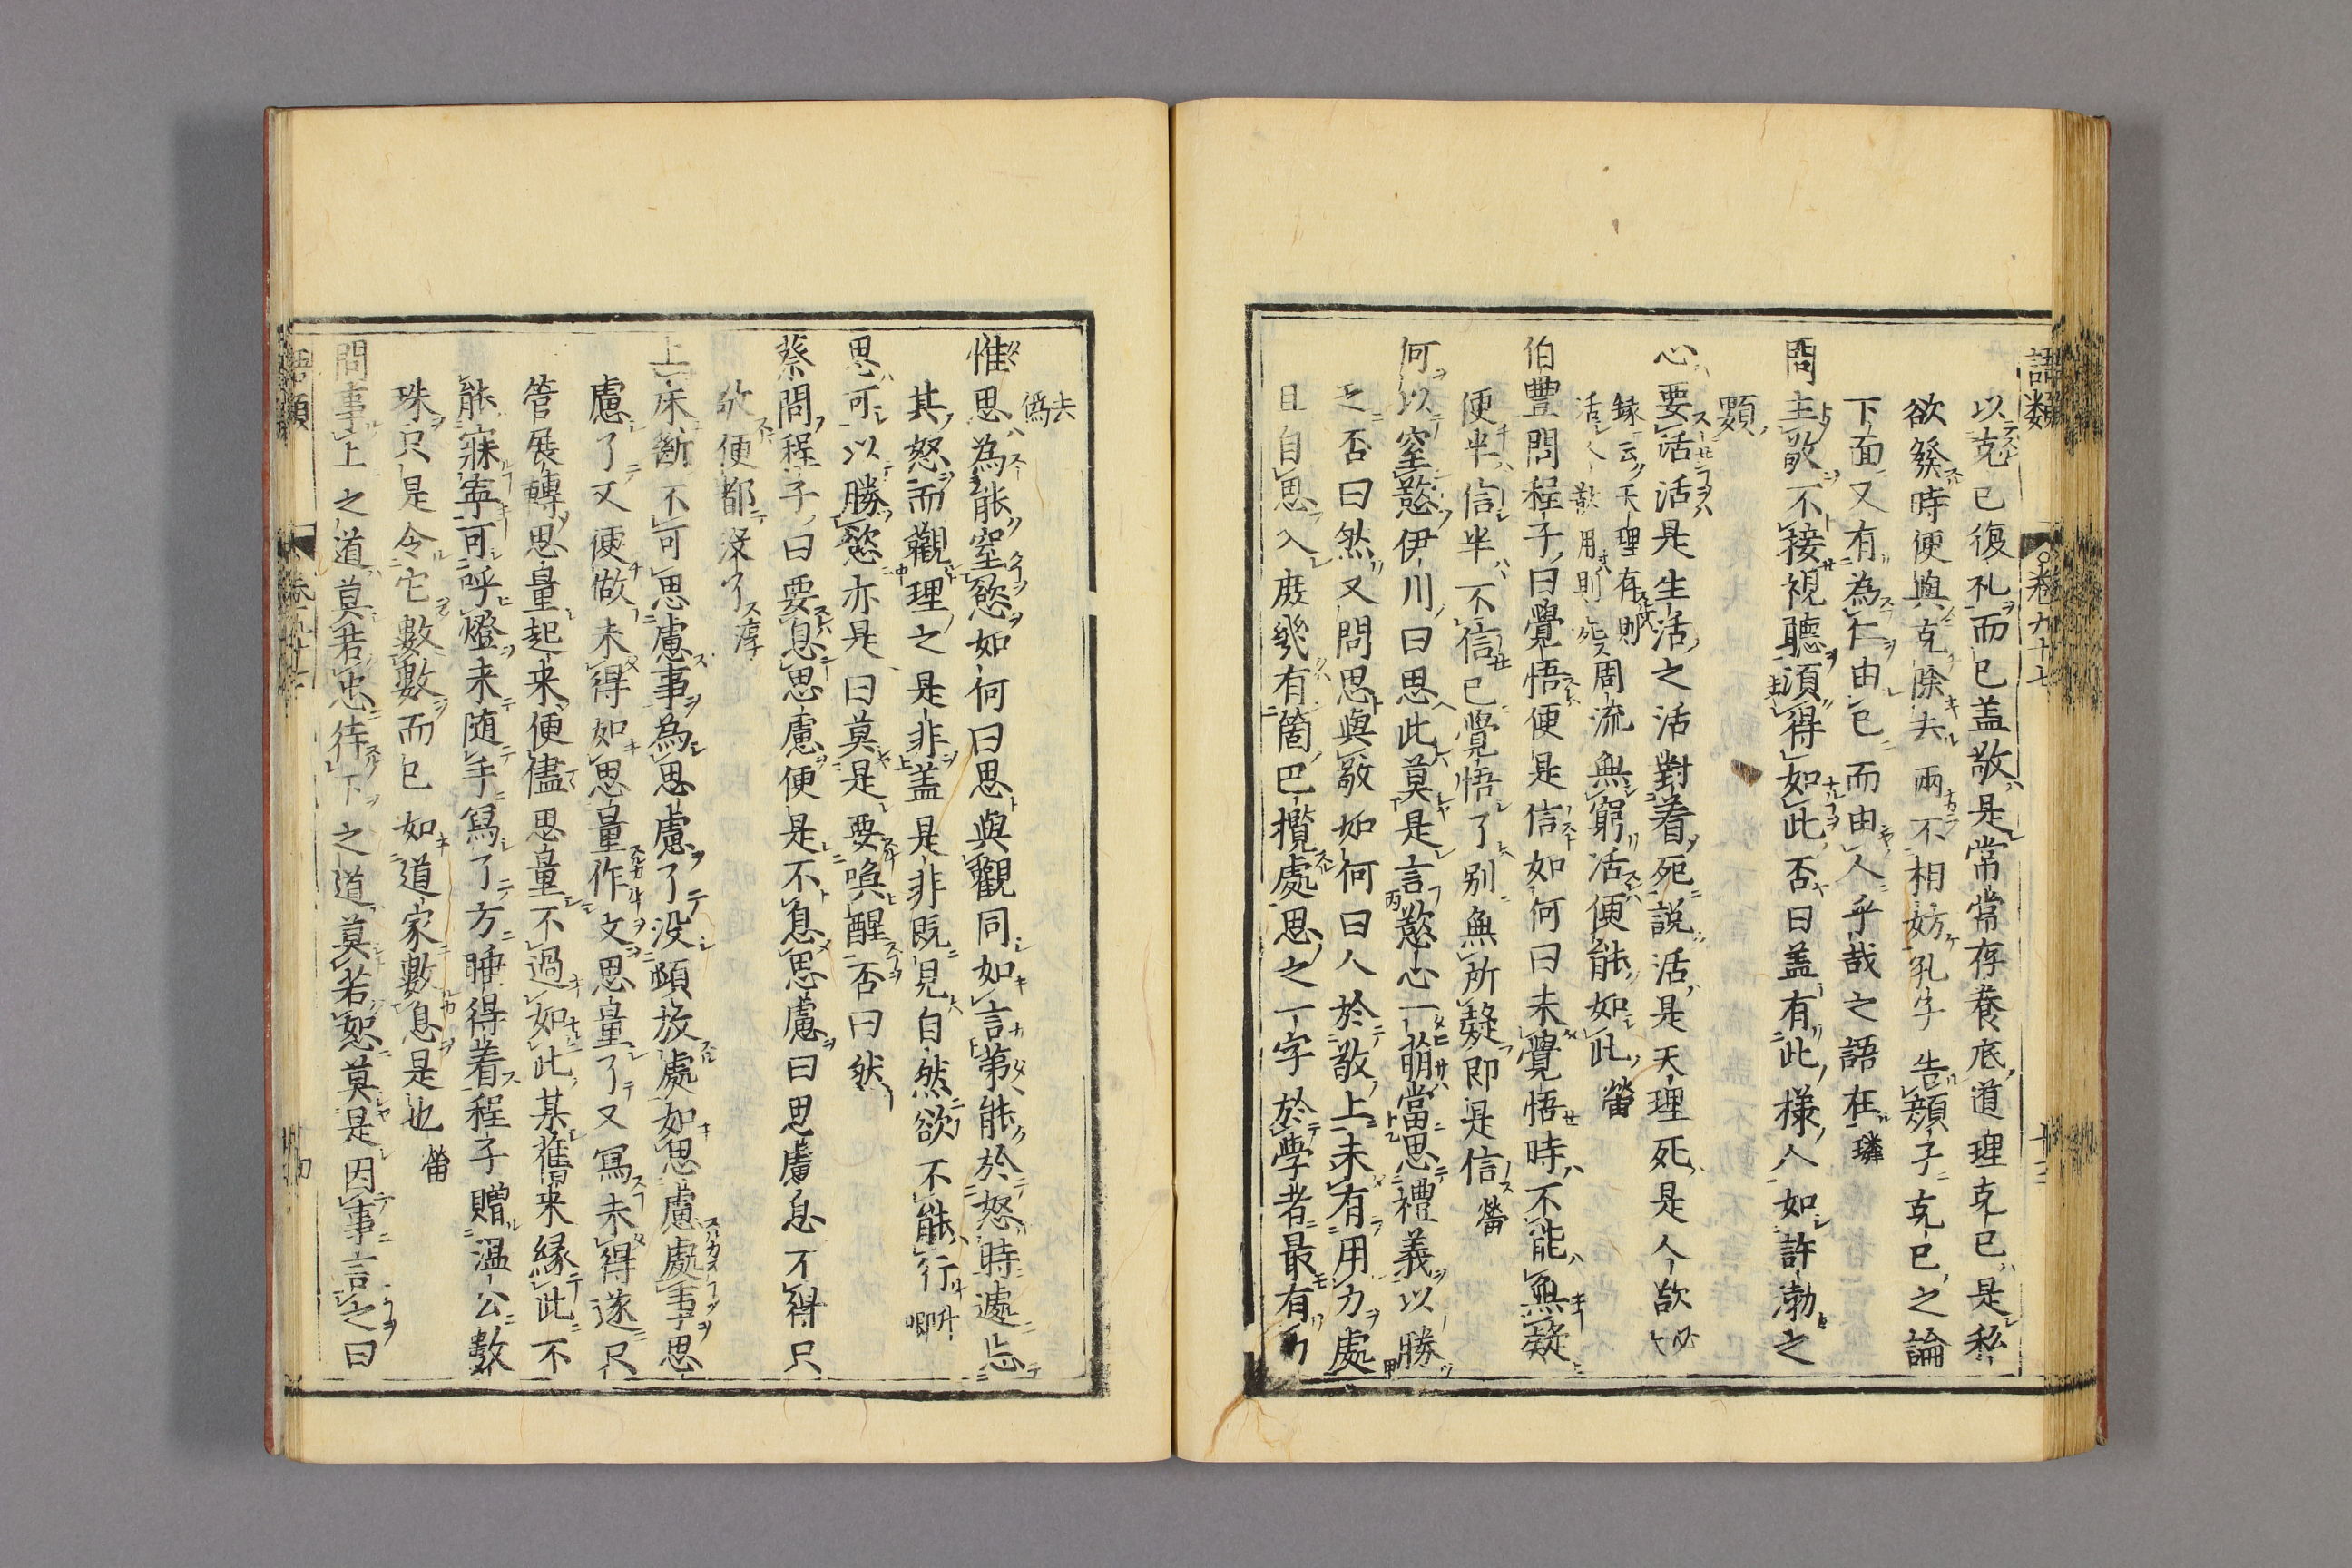 語類 卷九十七 十三
以克己復礼而已盖敬是常常存養底道理克己是私
欲發時便與克除去兩不相妨孔子告顔子克己之論
下面又有為仁由已而由人乎哉之語在璘
問主敬不接視聽須得如此否曰盖有此樣人如許渤之
類
心要活活是生活之活對着死說活是天理死是人欲必大
録云天理有則
活人欲用則死周流無窮活便能如此𤲟
伯豐問程子曰覺悟便是信如何曰未覺悟時不能無疑
便半信半不信已覺悟了別無所疑即是信𤲟
何以窒慾伊川曰思此莫是言慾心一萌當思禮義以勝
之否曰然又問思與敬如何曰人於敬上未有用力處
且自思入庶幾有箇巴攬處思之一字於學者最有力
去偽
惟思為能窒慾如何曰思與觀同如言第能於怒時遽忘
其怒而觀理之是非盖是非既見自然欲不能行升卿
思可以勝慾亦是曰莫是要喚醒否曰然
蔡問程子曰要息思慮便是不息思慮曰思慮息不得只
敬便都沒了淳
上床斷不可思慮事為思慮了没頓放處如思慮處事思
慮了又便做未得如思量作文思量了又寫未得遂只
管展轉思量起来便儘思量不過如此某舊来縁此不
能寐寧可呼燈来随手寫了方睡得着程子贈溫公數
珠只是令它數數而已如道家數息是也𤲟
問事上之道莫若忠待下之道莫若恕莫是因事言之曰
語類